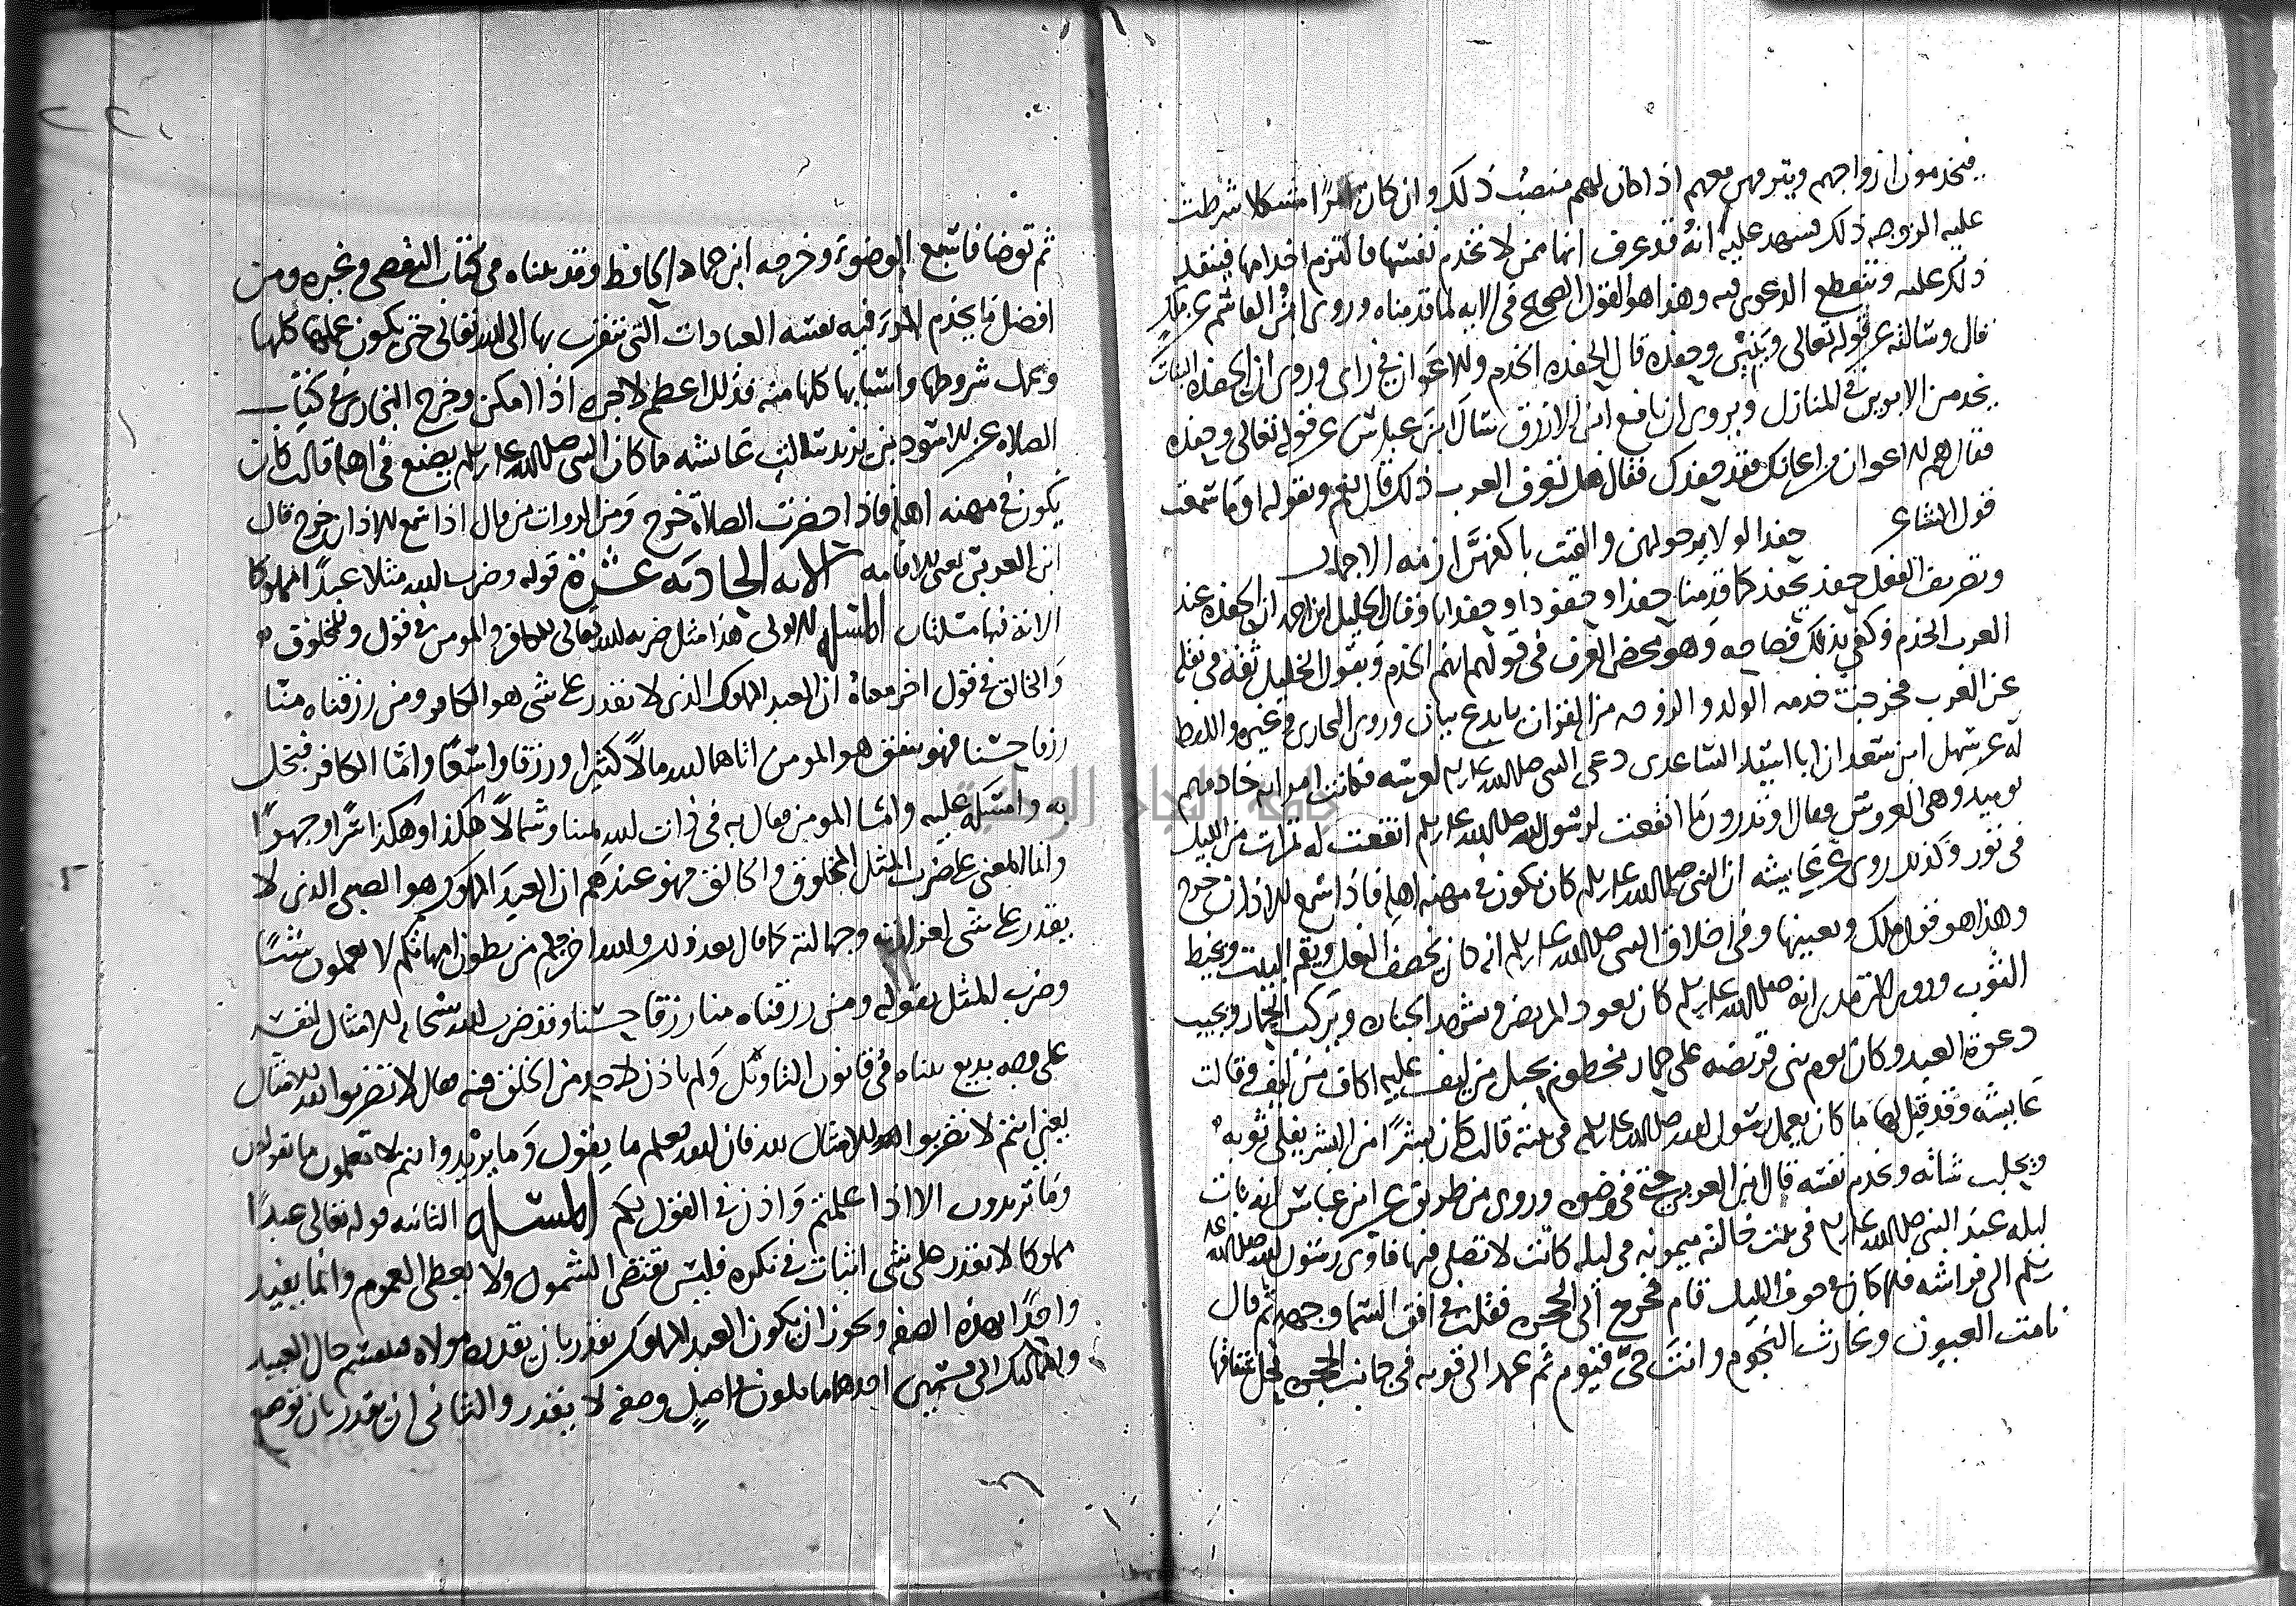 فيخدمون ازواجهم ويترمهن معهم اذا كان لهم منصب ذلك وان كان امرا مشكلا شرطت
عليه الزوجه ذلك فيشهد عليه انه قد عرف انها ممن لا تخدم نفسها فالتزم اخدامها فينفذ
ذلك عليه وتنقطع الدعوى فيه وهذا هو القول الصحيح في الايه لما قدمناه وروى ابن القاسم عن ملك
قال وسالته عن قوله تعالى وبنين وحفده قال الحفده الخدم والاعوان في راي وروى ان الحفده البنات
يخدمن الابوين في المنازل ويروى ان نافع ابن الازرق سال ابن عباس عن قوله تعالى وحفده
فقال هم الاعوان من اعانك فقد حفدك فقال هل تعرف العرب ذلك قال نعم وتقوله اوما سمعت
قول الشاعر حفد الولايد حولهن والقيت باكفهن ازمه الاجمال
وتصريف الفعل حفد يحفد كما قدمنا حفدا وحفودا وحفدانا وقال الخليل ابن احمد ان الحفده عند
العرب الخدم وكفي بذلك فصاحه وهو محض العرف في قولهم انهم الخدم وبقول الخليل ثقه في نقله
عن العرب فخرجت خدمه الولد والزوجه من القران بابدع بيان وروى البخارى وغيره واللفظ
له عن سهل ابن سعد ان ابا اسيد الساعدى دعى النبي صلى الله عليه وسلم لعرسه فكانت امراته خادمهم
يوميذ وهى العروس فقال اوتدرون ما انقعت لرسول الله صلى الله عليه وسلم انقعت له تمرات من الليل
في تور وكذلك روى عن عايشه ان النبي صلى الله عليه وسلم كان يكون في مهنه اهله فاذا سمع الاذان خرج
وهذا هو قول ملك ويعينها وفي اخلاق النبي صلى الله عليه وسلم انه كان يخصف النعل ويقم البيت ويخيط
الثوب وروى الترمذى انه صلى الله عليه وسلم كان يعود المريض ويشهد الجنازه ويركب الحمار ويجيب
دعوة العبد وكان يوم بنى قريضه على حمار مخطوم بحبل من ليف عليه اكاف من ليف وقالت
عايشه وقد قيل لها ما كان يعمل رسول الله صلى الله عليه وسلم في بيته قالت كان بشرا من البشر يفلى ثوبه
ويحلب شاته ويخدم نفسه قال ابن العربي حتى في وضوه وروى من طريق عن ابن عباس انه بات
ليله عند النبي صلى الله عليه وسلم في بيت خالته ميمونه في ليله كانت لا تصلى فيها فاوى رسول الله صلى الله عليه
وسلم الى فراشه فلما كان في جوف الليل قام فخرج الى الحجره فقلب في افق السما وجهه ثم قال
نامت العيون وغارت النجوم وانت حي قيوم ثم عمد الى قربه في جانب الحجره فحل شناقها
ثم توضا فاسبغ الوضوء وخرجه ابن حماد الحافظ وقد بيناه في كتاب التقصي وغيره ومن
افضل ما يخدم المرء فيه نفسه العبادات التي يتقرب بها الى الله تعالى حتى يكون عملها كلها
وبمل شروطها واسبابها كلها منه فذلك اعظم لاجره اذا امكن وخرج البخارى في كتاب
الصلاه عن الاسود بن يزيد سالت عايشه ما كان النبي صلى الله عليه وسلم يصنع في اهله قالت كان
يكون في مهنه اهله فاذا حضرت الصلاة خرج ومن الروات من قال اذا سمع الاذان خرج قال
ابن العربي يعنى الاقامه الايه الحادية عشرة قوله وضرب الله مثلا عبدا مملوكا
الايه فيها مسلتان المسله الاولى هذا مثل ضربه الله تعالى للكافر والمومن في قول وللمخلوق
والخالق في قول اخر معناه ان العبد المملوك الذى لا يقدر على شى هو الكافر ومن رزقناه منا
رزقا حسنا فهو ينفق هو المومن اتاه الله مالا كثيرا ورزقا واسعا واما الكافر فبخل
به وامسكه عليه واما المومن فقال به في ذات الله يمينا وشمالا هكذا وهكذا سرا وجهرا
واما المعنى على ضرب المثل المخلوق والخالق فهو عندهم ان العبد المملوك هو الصبي الذى لا
يقدر على شى لعزازته وجهالته كما قال بعد ذلك والله اخرجكم من بطون امهاتكم لا تعلمون شيئا
وضرب المثل بقوله ومن رزقناه منا رزقا حسنا وقد ضرب الله سبحانه الامثال لنفسه
على وجه بديع بيناه في قانون التاويل ولم ياذن لاحد من الخلق فيه فقال لا تضربوا لله الامثال
يعني انتم لا تضربوا لله الامثال فان الله يعلم ما يقول وما يريد وانتم لا تعلمون ما تقولون
وما تريدون الا اذا علمتم واذن في القول لكم المسله الثانيه قوله تعالى عبدا
مملوكا لا يقدر على شى اثبات في نكره فليس تقتضى الشمول ولا يعطى العموم وانما يفيد
واحدا بهذه الصفه ويجوز ان يكون العبد المملوك يقدر بان يقدره مولاه فينقسم حال العبيد
والمماليك الى قسمين احدهما ما يكون في اصله وصفه لا يقدر والثاني ان يقدر بان توضع